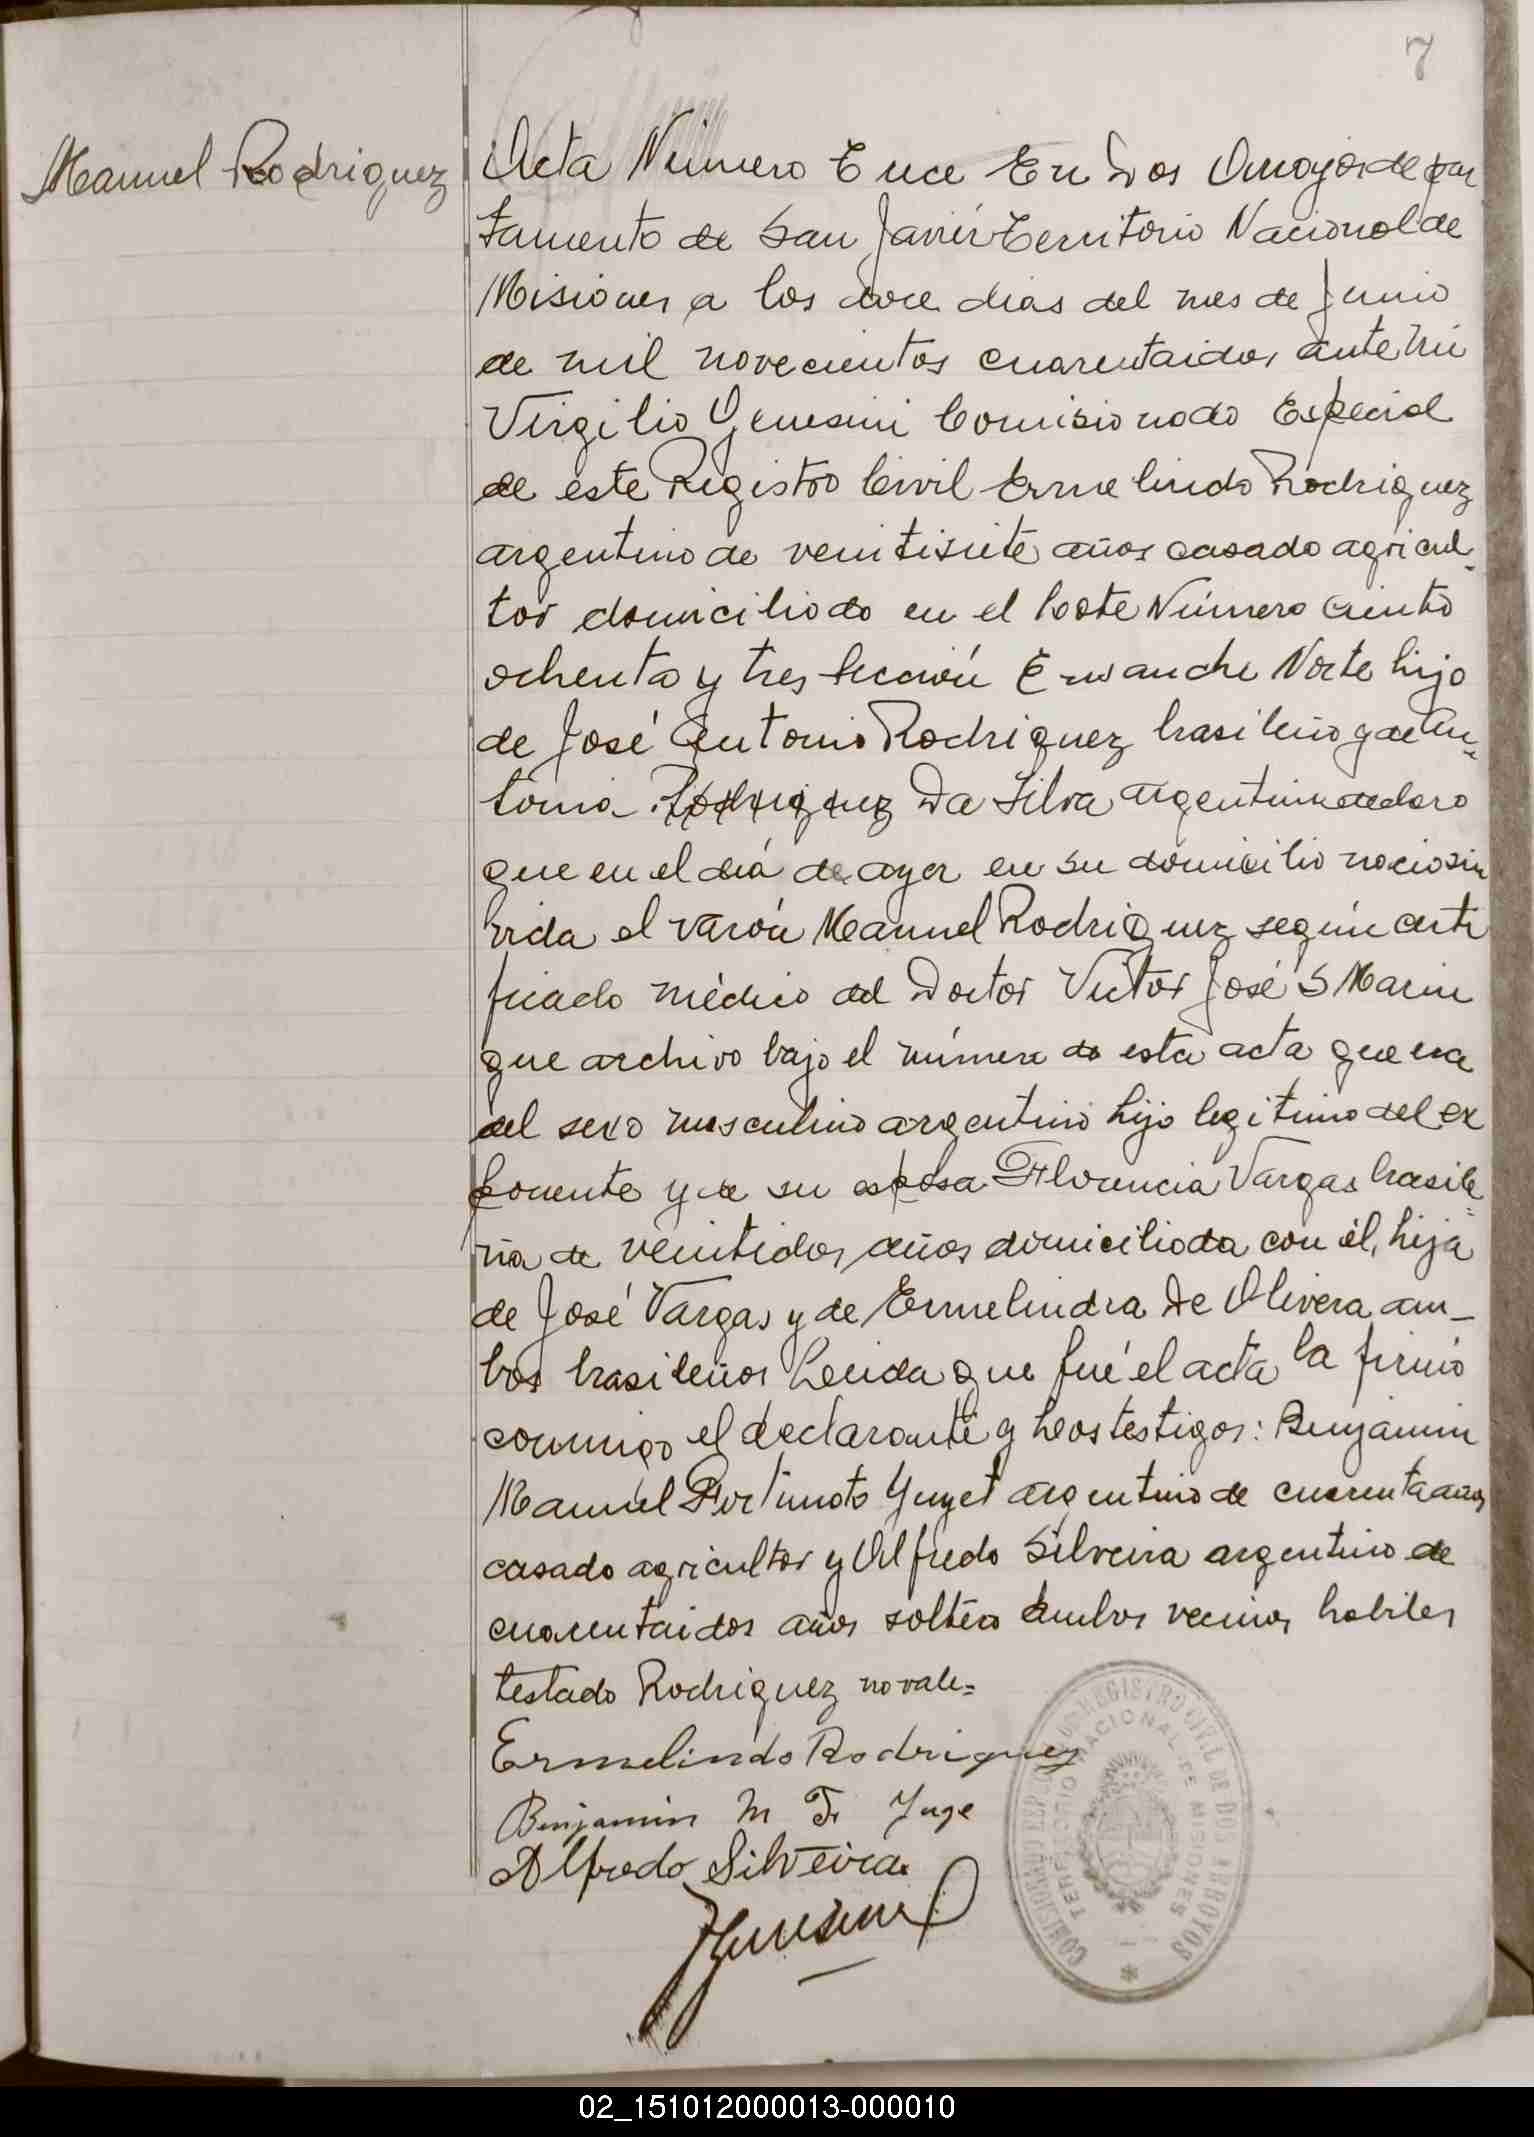 7
Manuel Rodriguez
Acta Número Once En Dos Arroyos depar
tamento de San Javier Territorio Nacional de
Misiones a los doce dias del mes de Junio
de mil novecientos cuarentaidos ante mi
Virgilio Genesini Comisionado Especial
de este Registro Civil Ermelindo Rodriguez
argentino de veintisiete años casado agricul-
tor domiciliado en el Lote Número ciento
ochenta y tres Sección Norte hijo
de José Antonio Rodriguez brasileño y de An-
tonia Rodriguez Da Silva argentina declaro
que en el diá de ayer en su domicilio nacio sin
vida el varón Manuel Rodriguez según certi
ficado médico del Doctor Victor José S Marin
que archivo bajo el número de esta acta que era
del sexo masculino argentino hijo legitimo del ex
ponente y de su esposa Florencia Vargas brasile-
ña de veintidos años domiciliada con él, hija
de José Vargas y de Ermelindra De Olivera am-
bos brasileños Leida que fué el acta la firmó
conmigo el declarante y los testigos: Benjamin
Manuel Fortunato argentino de cuarenta años
casado agricultor y Alfredo Silveira argentino de
cuarentaidos años soltero ambos vecinos habiles
testado Rodriguez no vale=
Ermelindo Rodriguez
Benjamin M F
Alfredo Silveira
COMISIONADO ESPECIAL DE REGISTRO CIVIL DE DOS ARROYOS
TERRITORIO NACIONAL DE MISIONES
02_151012000013-000010